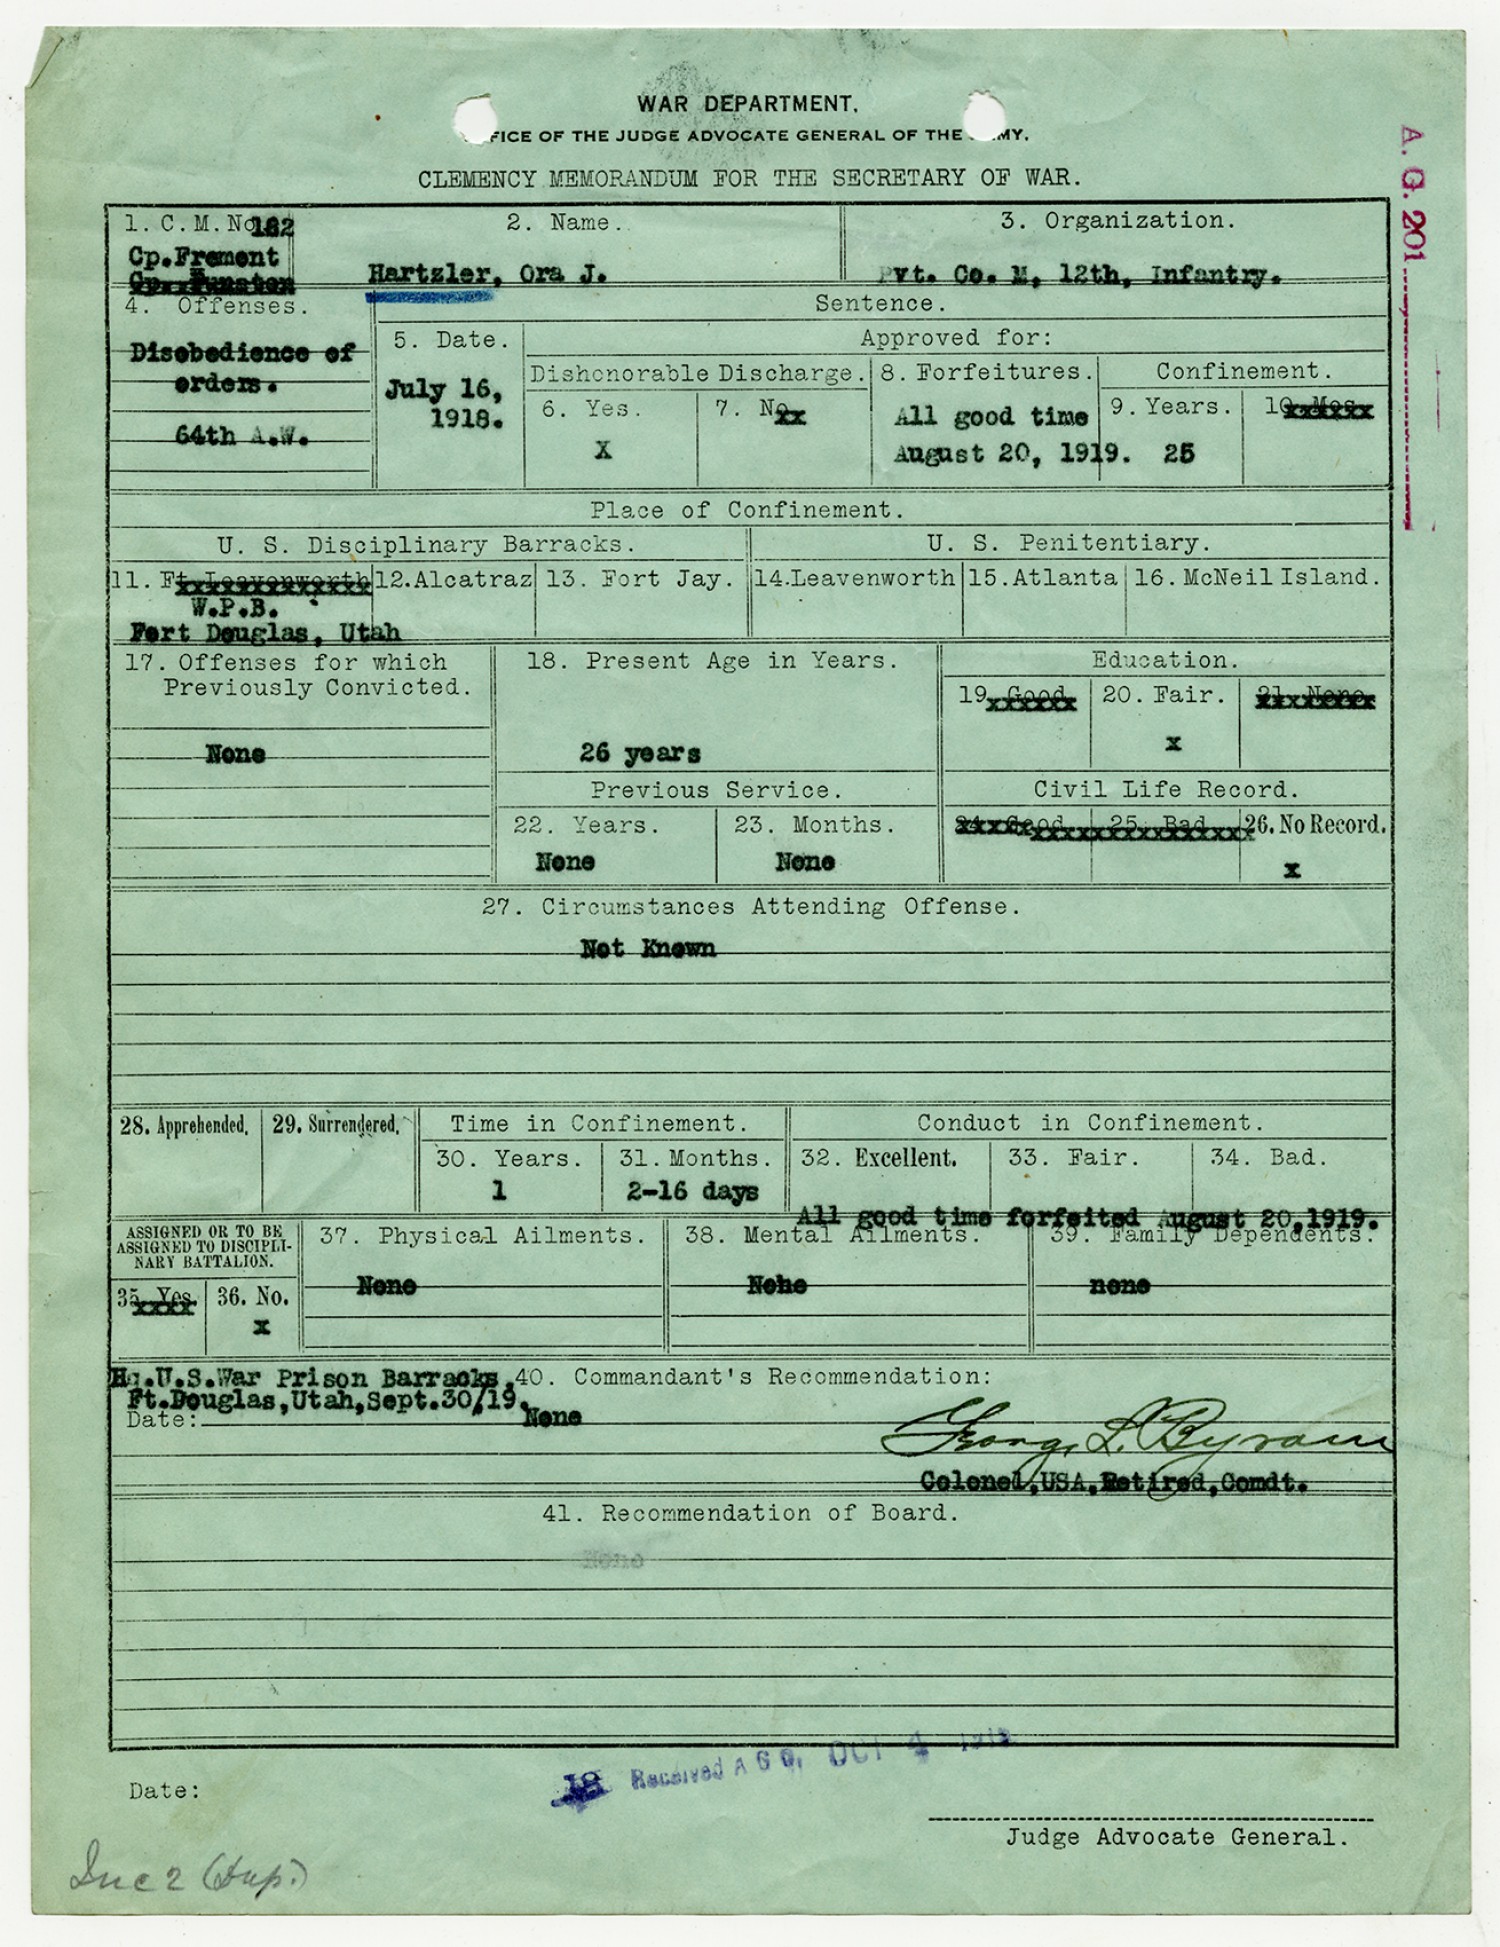 WAR DEPARTMENT.
FICE OF THE JUDGE ADVOCATE GENERAL OF THE MY.
CLEMENCY MEMORANDUM FOR THE SECRETARY OF WAR.
A. G. 201
1. C. M. No 182
Cp.Fremont
Cp. Funston
2. Name.
Hartzler, Ora J.
3. Organization.
Pvt. Co. M, 12th, Infantry.
4. Offenses.
Disobedience of
orders.
64th A.W.
Sentence.
5. Date.
July 16,
1918.
Approved for:
Dishonorable Discharge.
6. Yes.
X
7. No
8. Forfeitures.
All good time
August 20, 1919.
Confinement.
9. Years.
25
10. Mos.
Place of Confinement.
U. S. Disciplinary Barracks.
U. S. Penitentiary.
11. Ft. Leavenworth
W.P.B.
Fort Douglas, Utah
12. Alcatraz
13. Fort Jay.
14. Leavenworth
15. Atlanta
16. McNeil Island.
17. Offenses for which
Previously Convicted.
None
18. Present Age in Years.
26 years
Education.
19. Good
20. Fair.
x
21. None
Previous Service.
22. Years.
None
23. Months.
None
Civil Life Record.
24. Good
25. Bad
26. No Record.
x
27. Circumstances Attending Offense.
Not Known
28. Apprehended.
29. Surrendered.
Time in Confinement.
30. Years.
1
31. Months.
2-16 days
Conduct in Confinement.
32. Excellent.
33. Fair.
34. Bad.
All good time forfeited August 20,1919.
ASSIGNED OR TO BE
ASSIGNED TO DISCIPLI-
NARY BATTALION.
35. Yes.
36. No.
x
37. Physical Ailments.
None
38. Mental Ailments.
None
39. Family Dependents.
none
Hq.U.S.War Prison Barracks,
Ft.Douglas,Utah,Sept.30/19.
Date:
40. Commandant's Recommendation:
None
George L. Byram
Colonel,USA,Retired,Comdt.
41. Recommendation of Board.
None
Received A G O, OCT 4
Date:
Judge Advocate General.
Inc 2 (Dup.)